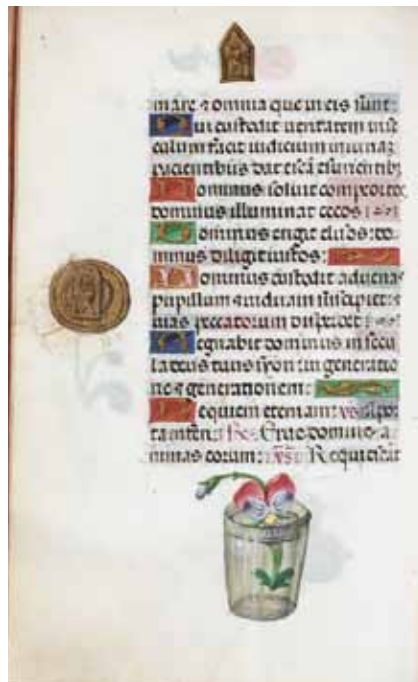 mare ⁊ omnia que in eis sunt:
Qui custodit ueritatem in se
culum facit iudicium iniuriaz
pacientibus dat escā esurientibꝫ
Dominus soluit compeditos
dominus illuminat cecos
Dominus erigit elisos: do
minus diligit iustos:
Dominus custodit aduenas
pupillum ⁊ uiduam suscipiet: ⁊
uias peccatorum disperdet
Regnabit dominus in secu
la deus tuus syon: in generatio
nē ⁊ generationem:
Requiem eternam: vs̄ A por
ta inferi: Rx. Erue domine a
nimas eorum: vs̄ Requiescāt